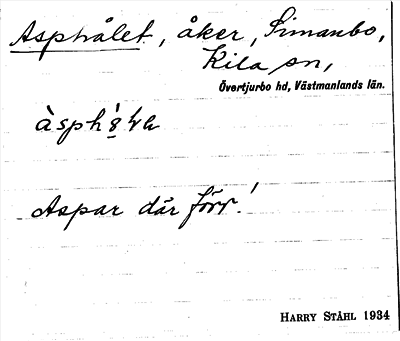 Asphålet, åker, Simanbo,
Kila sn,
Övertjurbo hd, Västmanlands län.
Aspar där förr!
HARRY STÅHL 1934